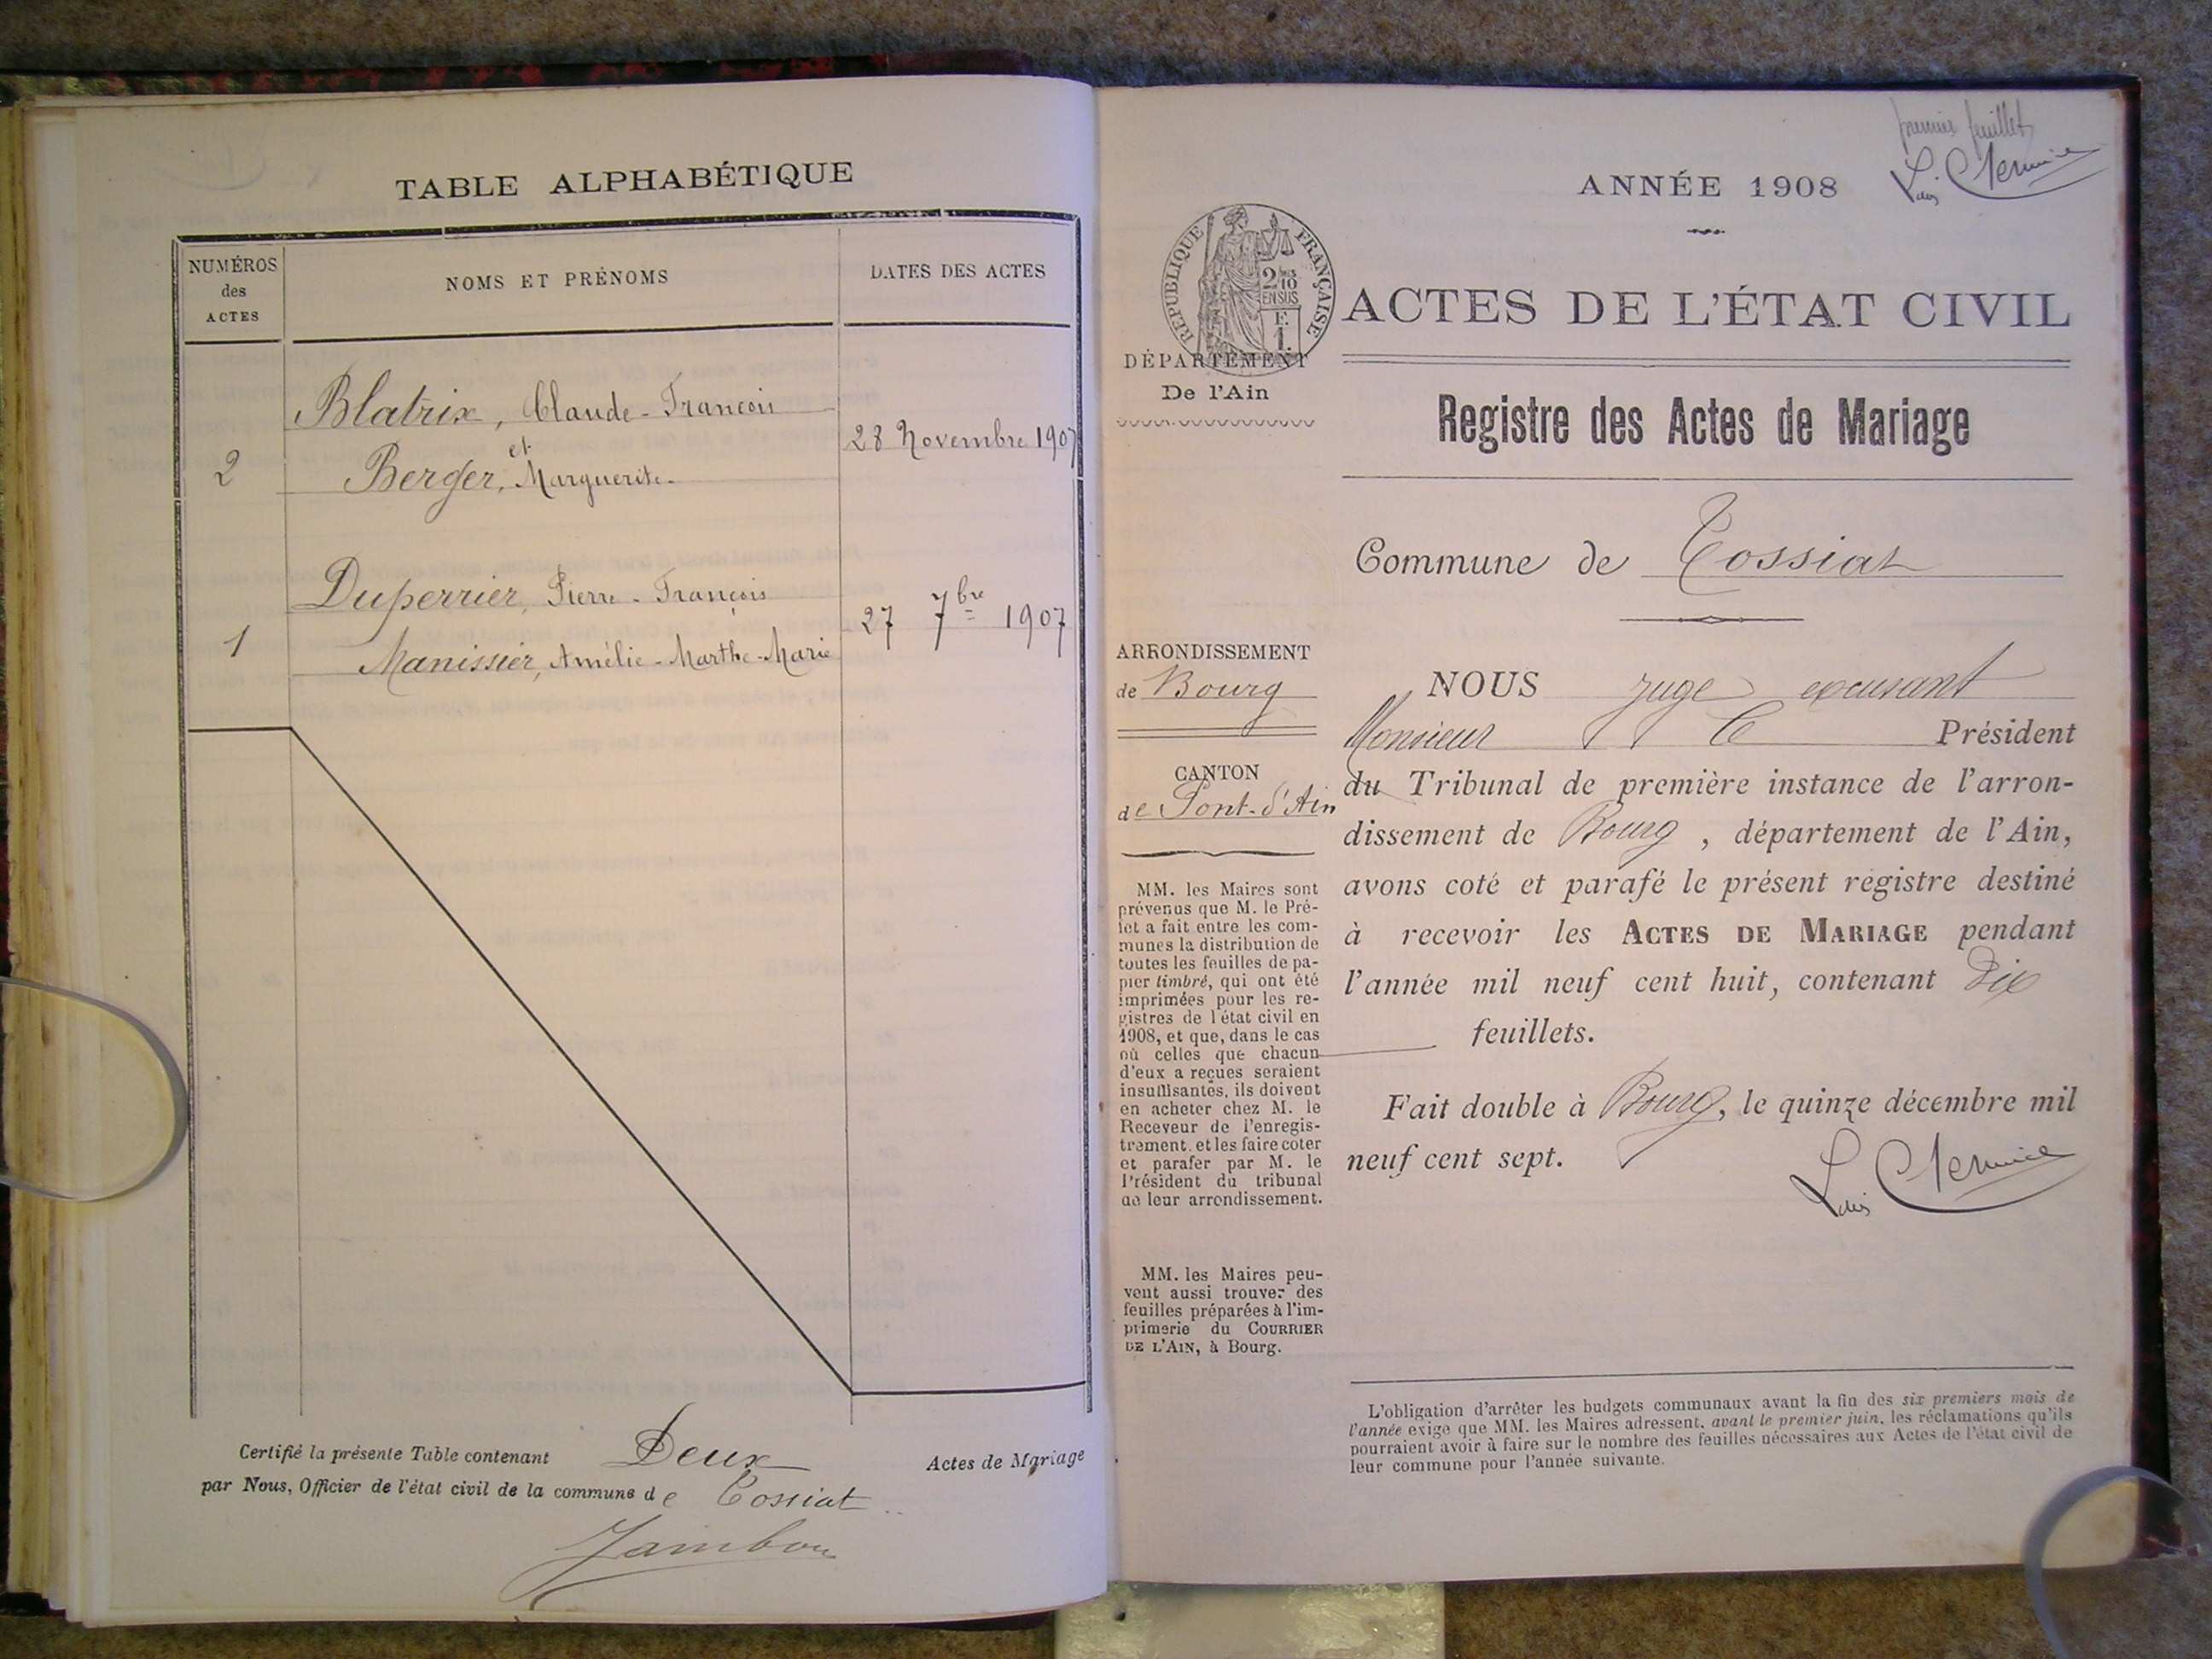 TABLE ALPHABÉTIQUE
NUMÉROS
des
ACTES
NOMS ET PRÉNOMS
DATES DES ACTES
Blatrix, Claude-François
et
2
Berger, Marguerite
28 Novembre 1907
Duperrier, Pierre-François
1
27 7bre 1907
Manissier, Amélie-Marthe-Marie
Certifié la présente Table contenant Deux Actes de Mariage
par Nous, Officier de l'état civil de la commune de Tossiat
Jambon
premier feuillet
ANNÉE 1908
RÉPUBLIQUE FRANÇAISE
2/10
EN SUS
F.
1.
ACTES DE L'ÉTAT CIVIL
DÉPARTEMENT
De l'Ain
Registre des Actes de Mariage
Commune de Tossiat
ARRONDISSEMENT
de Bourg
CANTON
de Pont-d'Ain
MM. les Maires sont
prévenus que M. le Pré-
fet a fait entre les com-
munes la distribution de
toutes les feuilles de pa-
pier timbré, qui ont été
imprimées pour les re-
gistres de l'état civil en
1908, et que, dans le cas
où celles que chacun
d'eux a reçues seraient
insuffisantes, ils doivent
en acheter chez M. le
Receveur de l'enregis-
trement, et les faire coter
et parafer par M. le
Président du tribunal
de leur arrondissement.
MM. les Maires peu-
vent aussi trouver des
feuilles préparées à l'im-
primerie du COURRIER
DE L'AIN, à Bourg.
NOUS juge excusant
Monsieur le Président
du Tribunal de première instance de l'arron-
dissement de Bourg, département de l'Ain,
avons coté et parafé le présent registre destiné
à recevoir les ACTES DE MARIAGE pendant
l'année mil neuf cent huit, contenant Dix
feuillets.
Fait double à Bourg, le quinze décembre mil
neuf cent sept.
L'obligation d'arrêter les budgets communaux avant la fin des six premiers mois de
l'année exige que MM. les Maires adressent, avant le premier juin, les réclamations qu'ils
pourraient avoir à faire sur le nombre des feuilles nécessaires aux Actes de l'état civil de
leur commune pour l'année suivante.